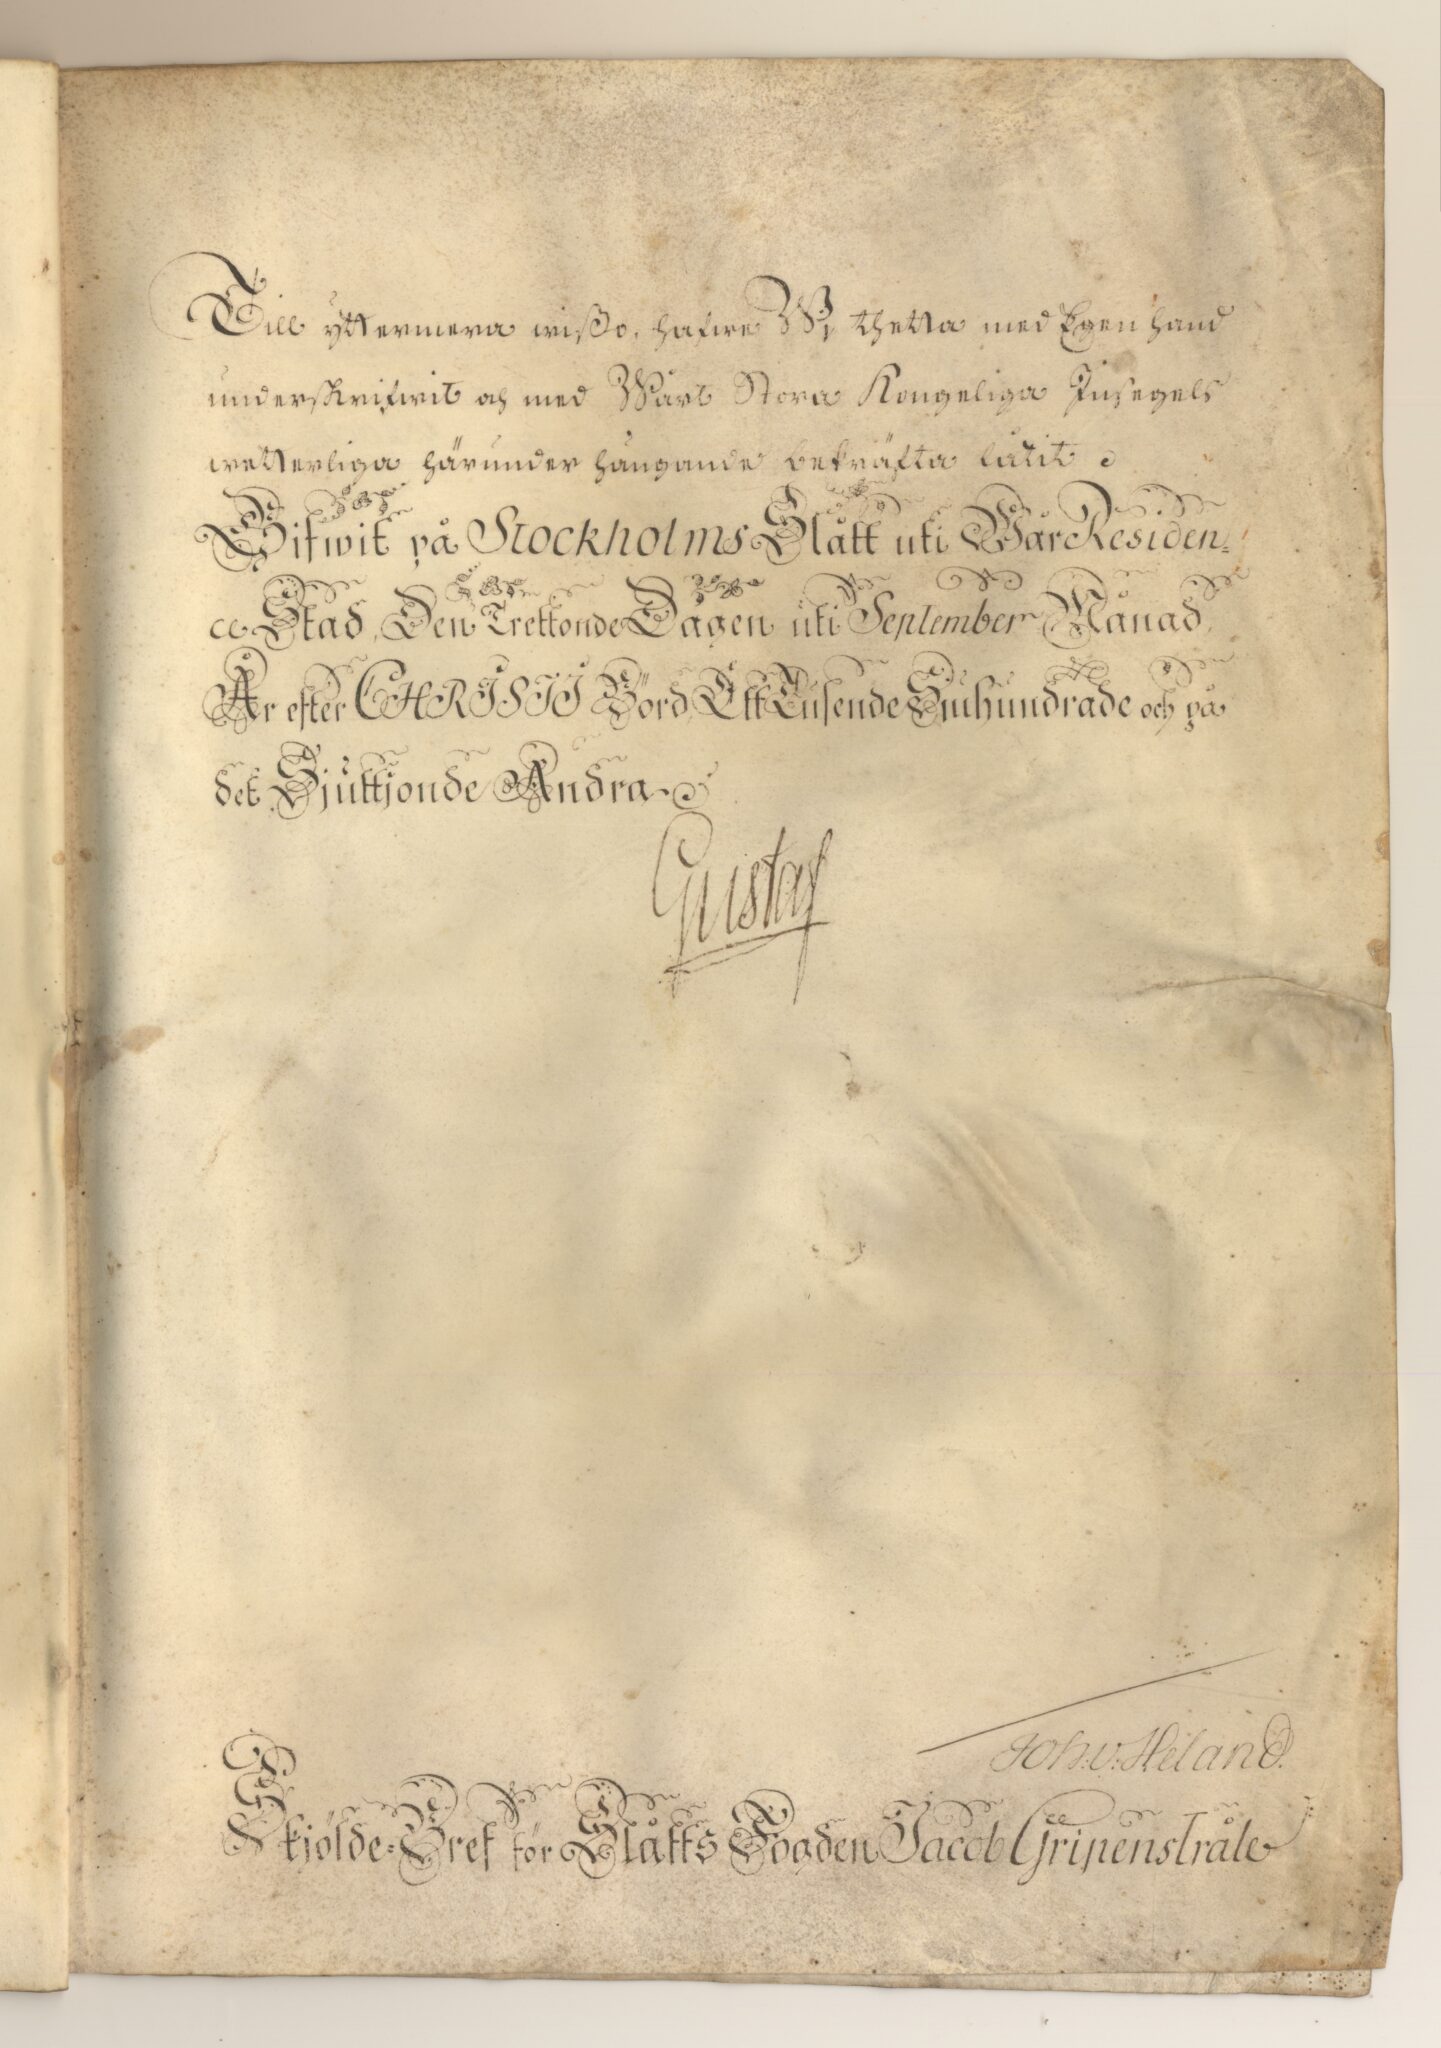 Till yttermera wißo, hafwe Wi thetta med Egen hand
underskrifwit och med Wårt Stora Kongeliga Insegels
wetterliga härunder hängande bekräfta latit
Gifwit på Stockholms Slått uti Wår Residen=
ce Stad, Den Trettonde Dagen uti September Månad,
År efter CHRISTI Börd, Ett Tusende Siuhundrade och på
det Sjuttjonde Andra
Gustaf
Joh: v: Heland.
Skjölde=Bref för Slåtts Fogden Jacob Gripenstråle